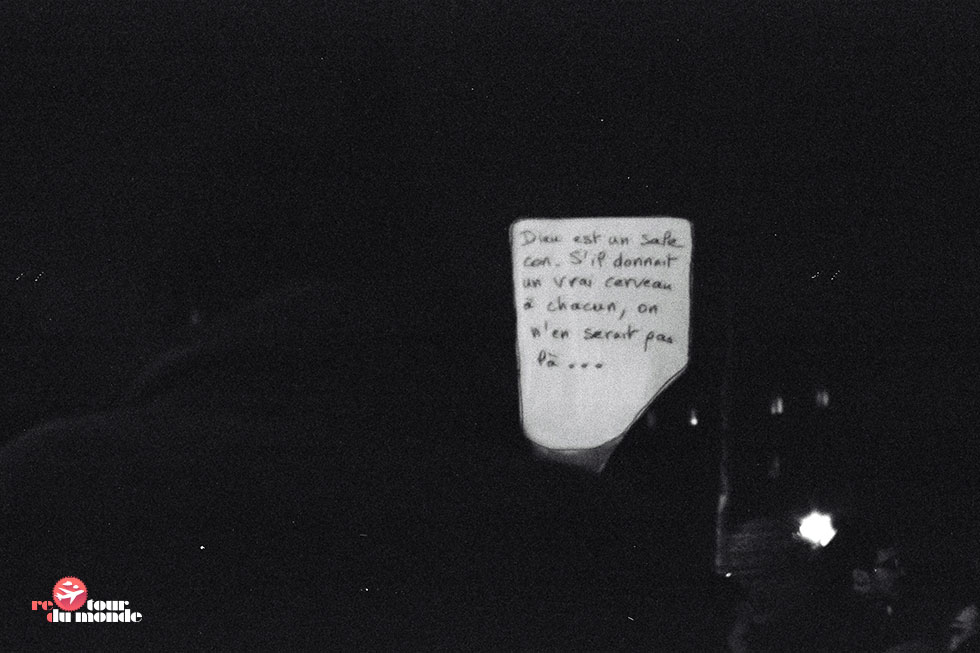 Dieu est un sale
con. S'il donnait
un vrai cerveau
à chacun, on
n'en serait pas
là...
re tour
du monde